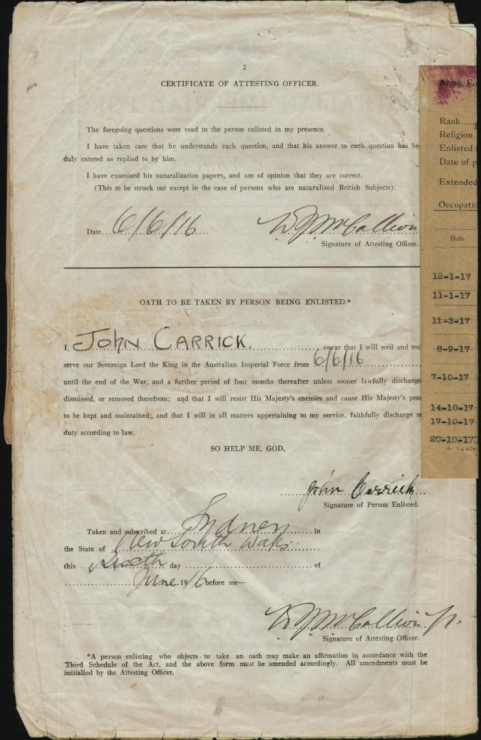 2
CERTIFICATE OF ATTESTING OFFICER.
The foregoing questions were read to the person enlisted in my presence.
I have taken care that he understands each question, and that his answer to each question has be
duly entered as replied to by him.
I have examined his naturalization papers, and am of opinion that they are correct.
(This to be struck out except in the case of persons who are naturalized British Subjects).
Date 6/6/16
Signature of Attesting Officer.
OATH TO BE TAKEN BY PERSON BEING ENLISTED.*
I, JOHN CARRICK swear that I will well and tru
serve our Sovereign Lord the King in the Australian Imperial Force from 6/6/16
until the end of the War, and a further period of four months thereafter unless sooner lawfully discharge
dismissed, or removed therefrom; and that I will resist His Majesty's enemies and cause His Majesty's pea
to be kept and maintained; and that I will in all matters appertaining to my service, faithfully discharge m
duty according to law.
SO HELP ME, GOD.
John Carrick
Signature of Person Enlisted.
Taken and subscribed at Sydney in
the State of New South Wales
this Sixth day of
June 1916 before me—
Signature of Attesting Officer.
*A person enlisting who objects to take an oath may make an affirmation in accordance with the
Third Schedule of the Act, and the above form must be amended accordingly. All amendments must be
initialled by the Attesting Officer.
Army Fo
Rank
Religion
Enlisted
Date of p
Extended
Occupatio
Date
12-1-17
11-1-17
11-3-17
8-9-17
7-10-17
14-10-17
17-10-17
20-10-17